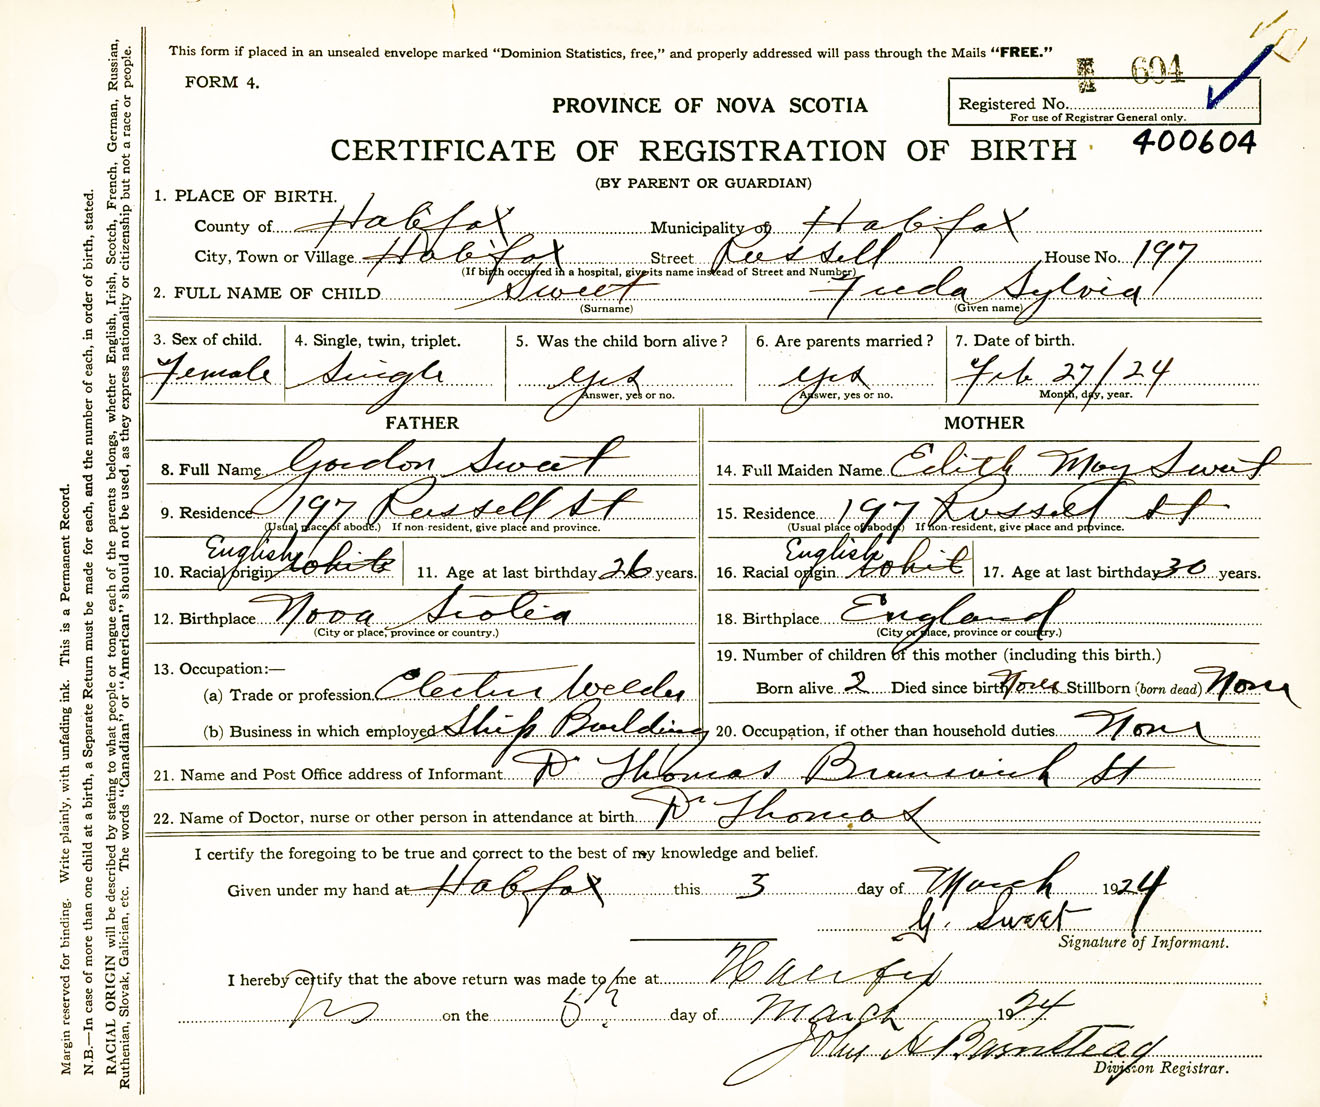 This form if placed in an unsealed envelope marked "Dominion Statistics, free," and properly addressed will pass through the Mails "FREE."
FORM 4.
604
PROVINCE OF NOVA SCOTIA
Registered No.
For use of Registrar General only.
CERTIFICATE OF REGISTRATION OF BIRTH
400604
(BY PARENT OR GUARDIAN)
1. PLACE OF BIRTH.
County of Halifax Municipality of Halifax
City, Town or Village Halifax Street Russell House No. 197
(If birth occurred in a hospital, give its name instead of Street and Number)
2. FULL NAME OF CHILD Sweet Freda Sylvia
(Surname) (Given name)
3. Sex of child. 4. Single, twin, triplet. 5. Was the child born alive? 6. Are parents married? 7. Date of birth.
Female Single Yes Yes Feb 27/24
Answer, yes or no. Answer, yes or no. Month, day, year.
FATHER MOTHER
8. Full Name Gordon Sweet 14. Full Maiden Name Edith May Sweet
9. Residence 197 Russell St 15. Residence 197 Russell St
(Usual place of abode.) If non-resident, give place and province. (Usual place of abode) If non-resident, give place and province.
English English
10. Racial origin white 11. Age at last birthday 26 years. 16. Racial origin white 17. Age at last birthday 30 years.
12. Birthplace Nova Scotia 18. Birthplace England
(City or place, province or country.) (City or place, province or country.)
13. Occupation:— 19. Number of children of this mother (including this birth.)
(a) Trade or profession Electric Welder Born alive 2 Died since birth None Stillborn (born dead) None
(b) Business in which employed Ship Building 20. Occupation, if other than household duties. None
21. Name and Post Office address of Informant Dr Thomas Brunswick St
22. Name of Doctor, nurse or other person in attendance at birth Dr Thomas
I certify the foregoing to be true and correct to the best of my knowledge and belief.
Given under my hand at Halifax this 3 day of March 1924
G. Sweet
Signature of Informant.
I hereby certify that the above return was made to me at Halifax
NS on the 5th day of March 1924
John H Barnstead
Division Registrar.
Margin reserved for binding. Write plainly, with unfading ink. This is a Permanent Record.
N.B.—In case of more than one child at a birth, a Separate Return must be made for each, and the number of each, in order of birth, stated.
RACIAL ORIGIN will be described by stating to what people or tongue each of the parents belongs, whether English, Irish, Scotch, French, German, Russian,
Ruthenian, Slovak, Galician, etc. The words "Canadian" or "American" should not be used, as they express nationality or citizenship but not a race or people.